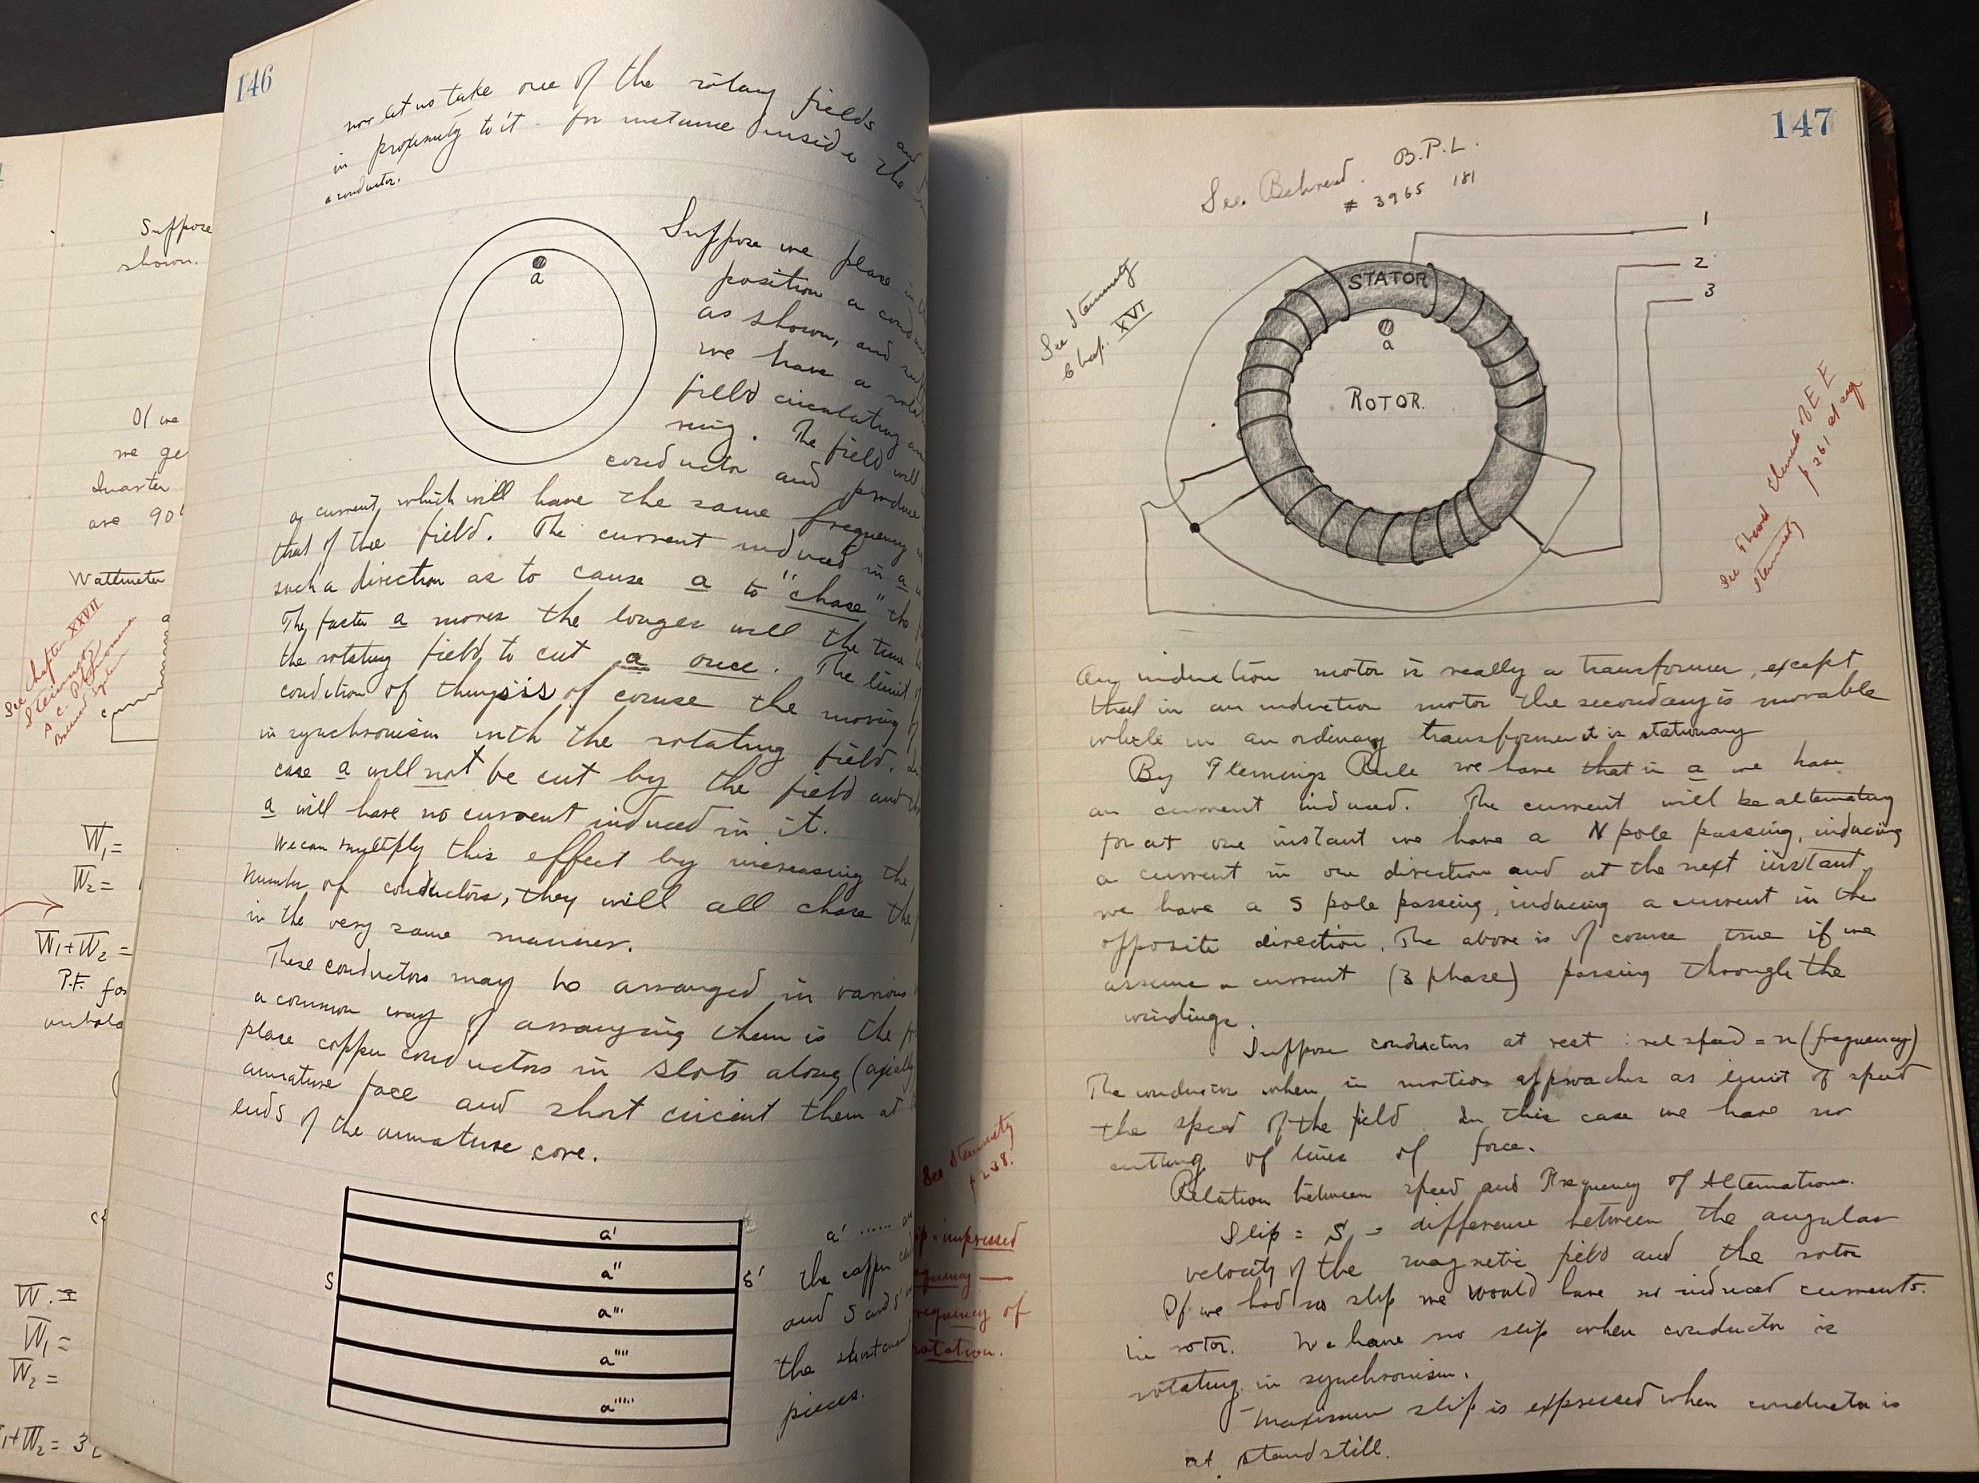 Suppose
shown.
If we
we ge
Quarter
are 90°
Wattmeter
See Chapter XXVII
Steinmetz
A.C. P
Balanced System
a
c
W₁ =
W₂ =
W₁+W₂ =
P.F. for
unbala
W. =
W₁ =
W₂ =
W₁+W₂ = 3
146
now let us take one of the rotary fields and
in proximity to it for instance inside the
a conductor.
a
Suppose we place in
position a cond
as shown, and
we have a rotat
field circulating
ring. The field will
conductor and produce
a current, which will have the same frequency
that of the field. The current induced in a
such a direction as to cause a to "chase" the
The faster a moves the longer will the time
the rotating field to cut a once. The limit
condition of things is of course the moving
in synchronism with the rotating field.
case a will not be cut by the field and
a will have no current induced in it.
We can multiply this effect by increasing the
number of conductors, they will all chase the
in the very same manner.
These conductors may be arranged in various
a common way of arranging them is the
place copper conductors in slots along (axially
armature face and short circuit them at
ends of the armature core.
a'
a"
a'"
a""
a""'
S
S'
a' ......
the copper
and S and S'
the
pieces.
See Steinmetz
p 238.
slip = impressed
frequency —
frequency of
rotation.
147
See. Behrend. B.P.L.
# 3965 181
See Steinmetz
Chap. XVI
1
2
3
STATOR
a
ROTOR.
See Elements of E E
p 261 et seq
Steinmetz
An induction motor is really a transformer, except
that in an induction motor the secondary is movable
while in an ordinary transformer it is stationary
By Flemings Rule we have that in a we have
an current induced. The current will be alternating
for at one instant we have a N pole passing, inducing
a current in one direction and at the next instant
we have a S pole passing, inducing a current in the
opposite direction. The above is of course true if we
assume a current (3 phase) passing through the
windings.
Suppose conductors at rest : rel speed = n (frequency)
The conductor when in motion approaches as limit of speed
the speed of the field. In this case we have no
cutting of lines of force.
Relation between speed and Frequency of Alternations.
Slip = S = difference between the angular
velocity of the magnetic field and the rotor
If we had no slip we would have no induced currents.
in rotor. We have no slip when conductor is
rotating in synchronism.
Maximum slip is expressed when conductor is
at standstill.